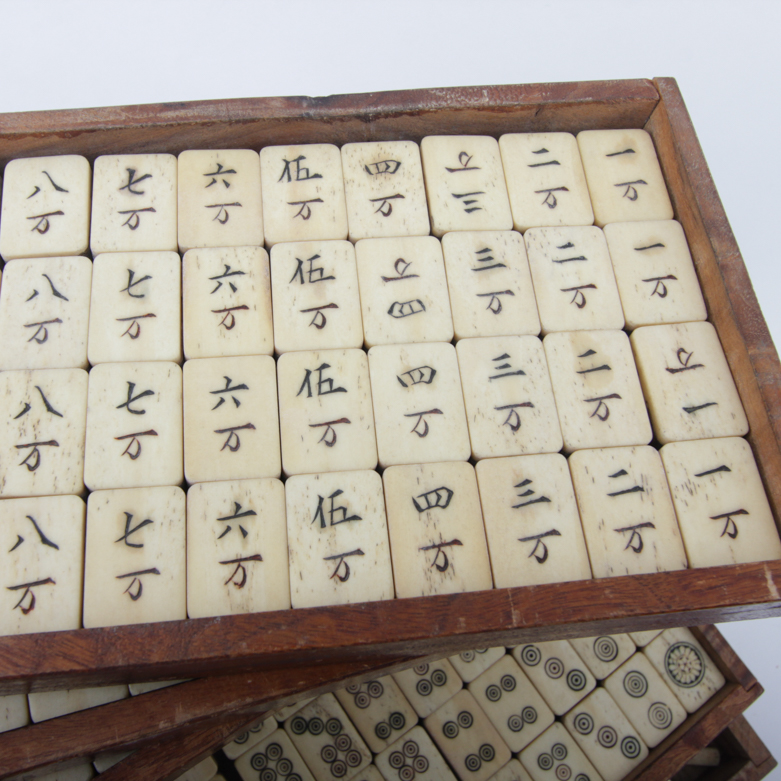 八万
七万
六万
伍万
四万
三万
二万
一万
八万
七万
六万
伍万
四万
三万
二万
一万
八万
七万
六万
伍万
四万
三万
二万
一万
八万
七万
六万
伍万
四万
三万
二万
一万